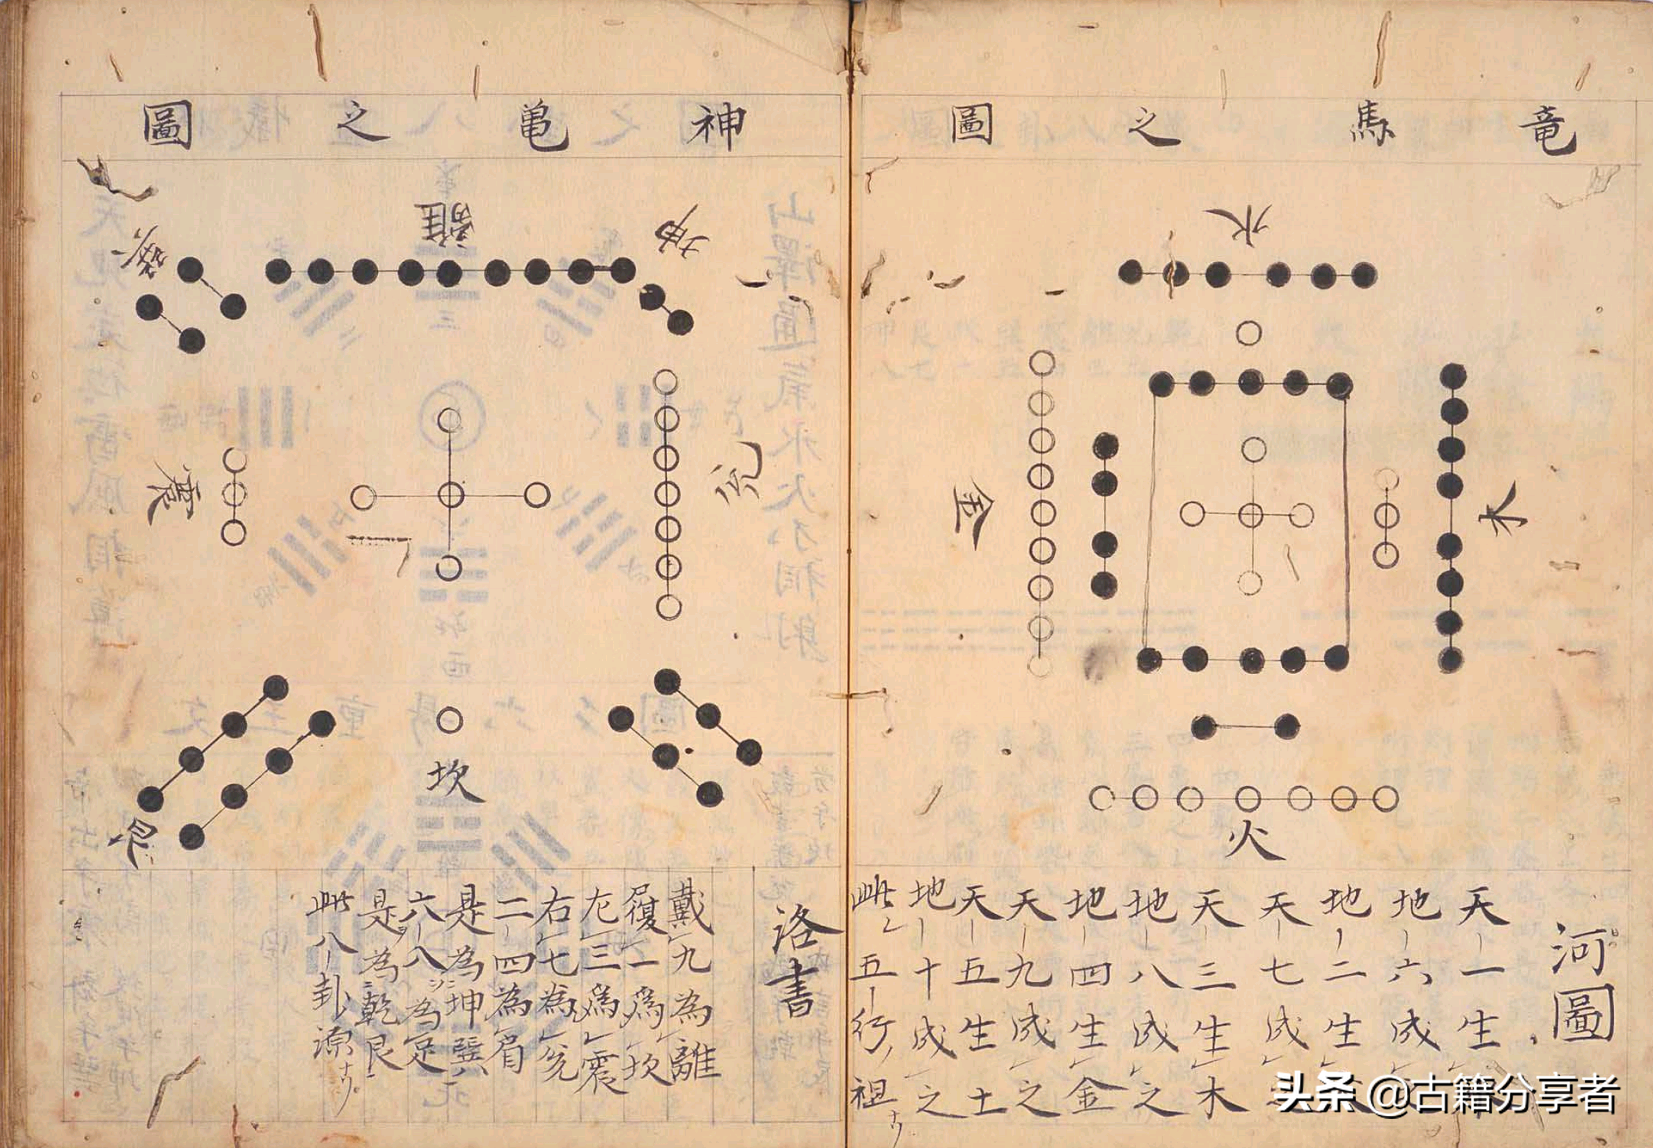 竜馬之圖
水
木
金
火
河圖
天一生
地六成
地二生
天七成
天三生木
地八成之
地四生金
天九成之
天五生土
地十成之
此五行ノ祖ナリ
神亀之圖
離
坤
巽
兌
震
坎
艮
洛書
戴九為離
履一為坎
左三為震
右七為兌
二四為肩
是為坤巽
六八為足
是為乾艮
此八卦源ナリ
头条 @古籍分享者